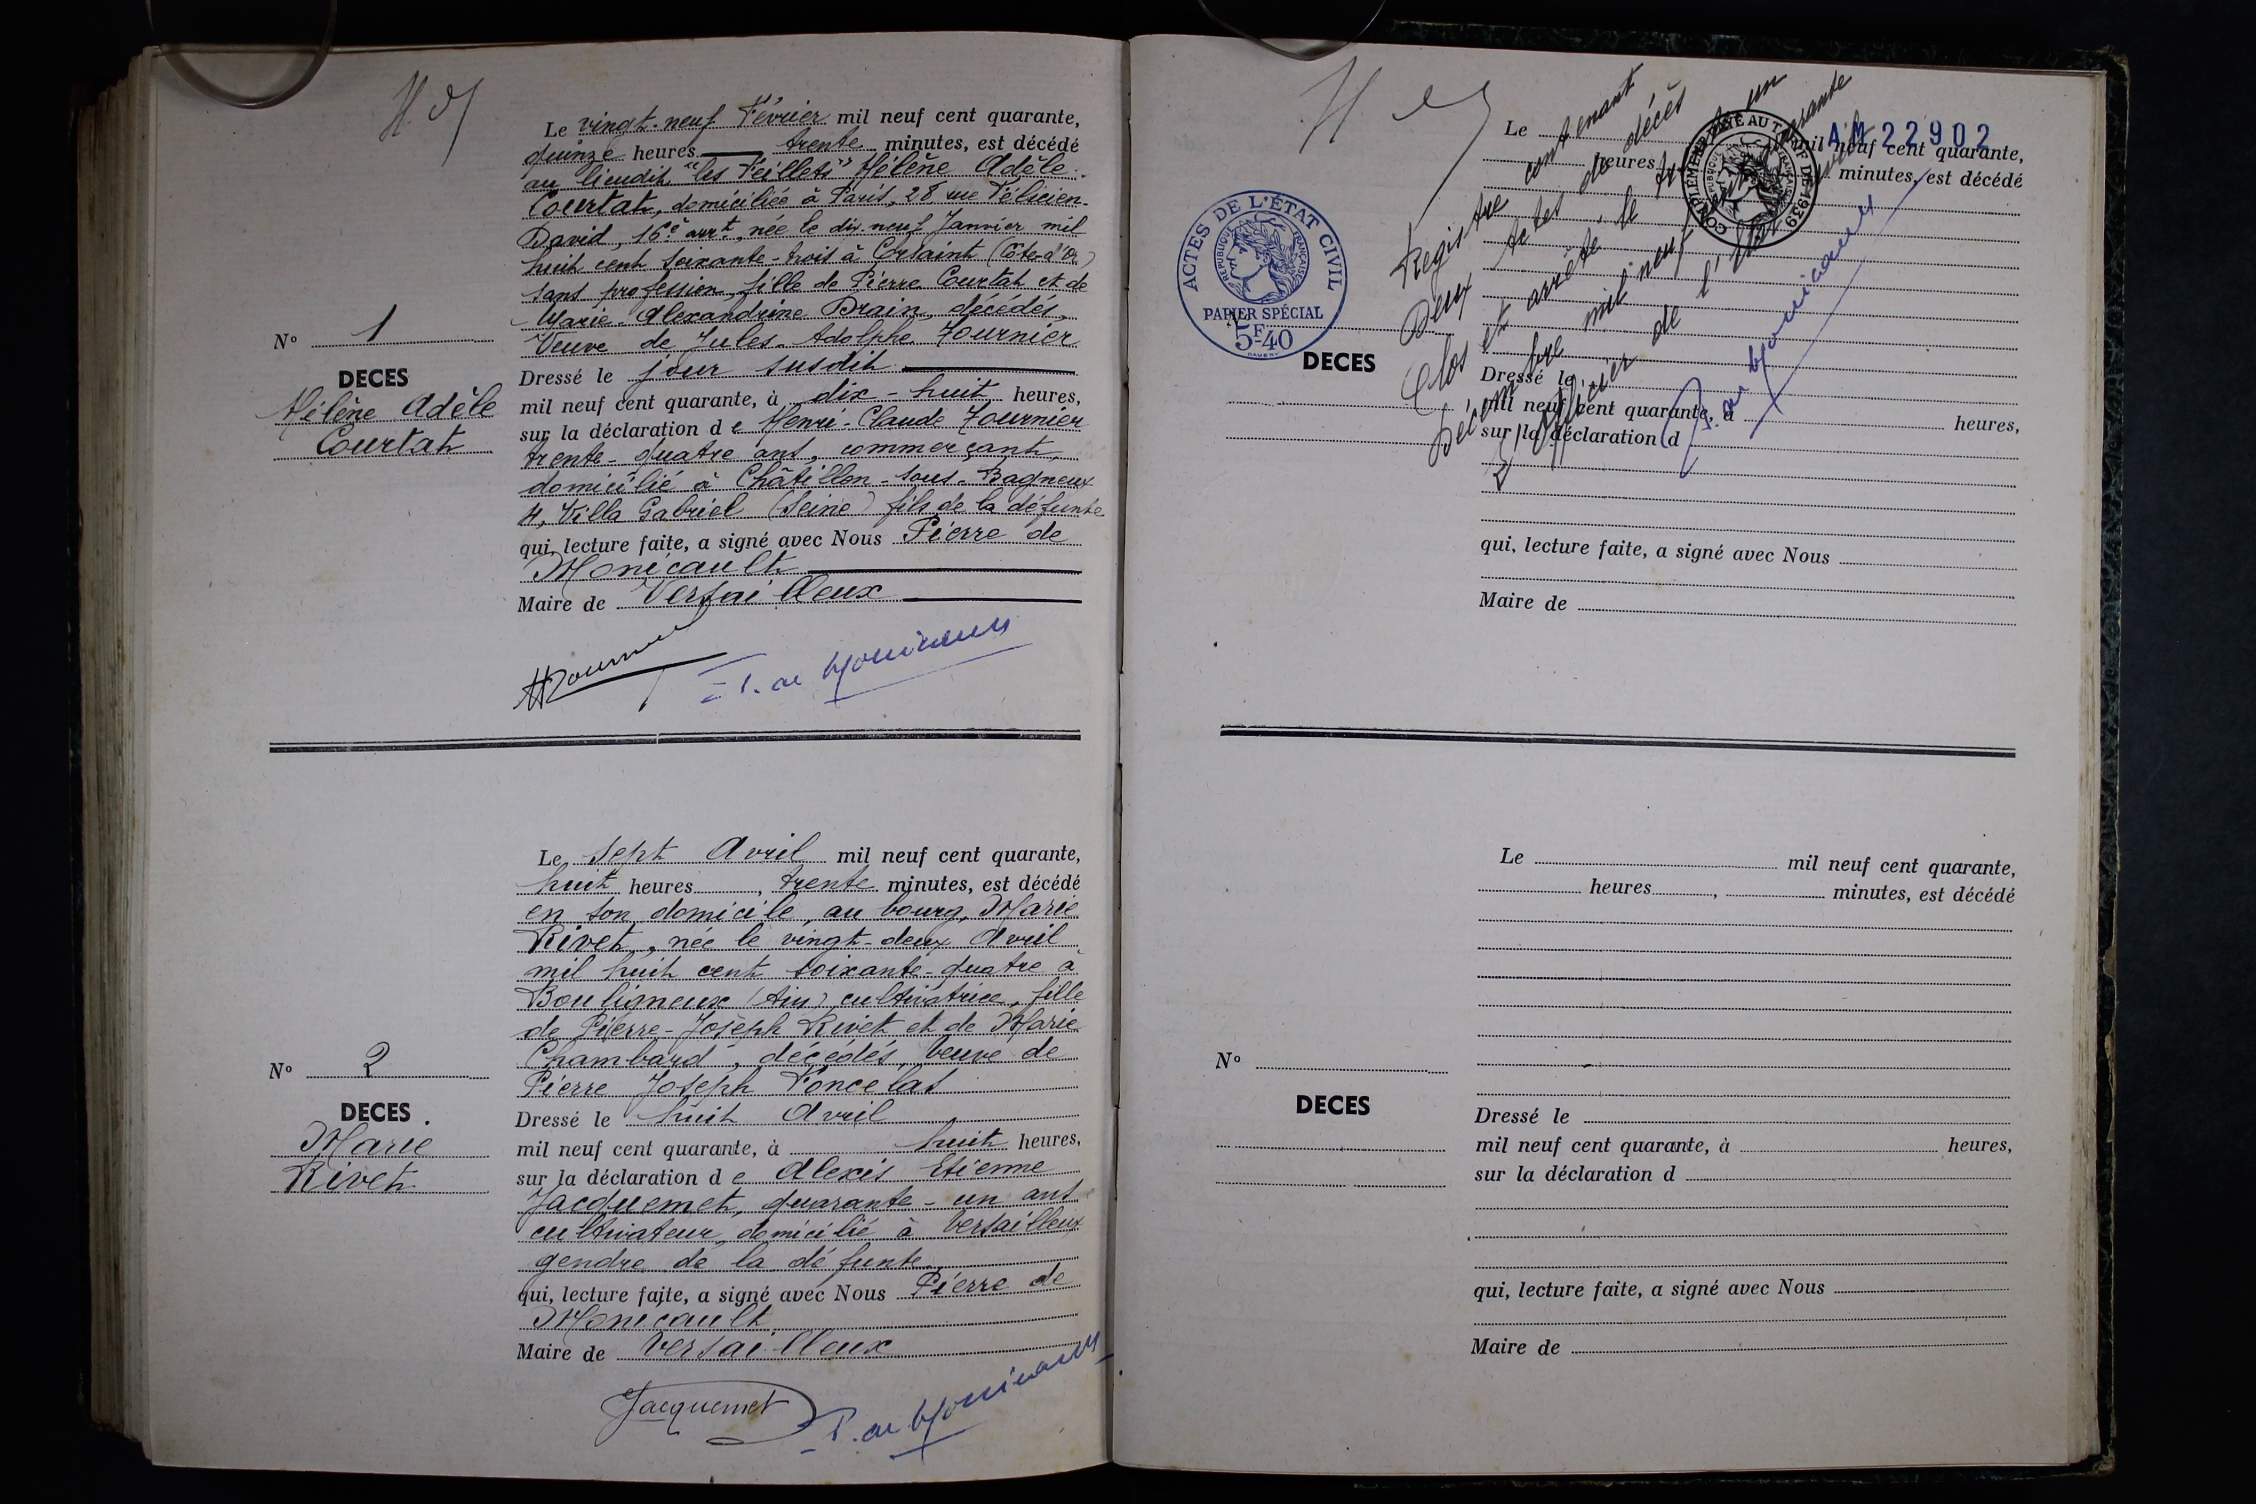 N° 1
DECES
Hélène Adèle
Courtat
Le vingt-neuf Février mil neuf cent quarante,
quinze heures trente minutes, est décédé
au lieudit "les Feillets" Hélène Adèle
Courtat, domiciliée à Paris, 28 rue Félicien-
David, 16e arrt, née le dix-neuf Janvier mil
huit cent soixante-trois à (Côte-d'Or)
sans profession, fille de Pierre Courtat et de
Marie-Alexandrine Drain, décédés,
Veuve de Jules-Adolphe Fournier
Dressé le jour susdit
mil neuf cent quarante, à dix-huit heures,
sur la déclaration de Henri-Claude Fournier
trente-quatre ans, commerçant,
domicilié à Châtillon-sous-Bagneux
4, Villa Gabriel (Seine) fils de la défunte
qui, lecture faite, a signé avec Nous Pierre de
Monicault
Maire de Versailleux
HFournier
P. de Monicault
N° 2
DECES
Marie
Rivet
Le sept Avril mil neuf cent quarante,
huit heures, trente minutes, est décédé
en son domicile, au bourg, Marie
Rivet, née le vingt-deux Avril
mil huit cent soixante-quatre à
Bouligneux (Ain) cultivatrice, fille
de Pierre-Joseph Rivet et de Marie
Chambard, décédés, veuve de
Pierre Joseph Poncelas
Dressé le huit Avril
mil neuf cent quarante, à huit heures,
sur la déclaration de Alexis Etienne
Jacquemet, quarante-un ans
cultivateur, domicilié à Versailleux
gendre de la défunte
qui, lecture faite, a signé avec Nous Pierre de
Monicault
Maire de Versailleux
Jacquemet
P. de Monicault
AM 22902
COMPLÉMENT AU TARIF DE 1939
ACTES DE L'ÉTAT CIVIL
RÉPUBLIQUE FRANÇAISE
PAPIER SPÉCIAL
5F40
Registre contenant
Deux actes de décès
Clos et arrêté le trente un
Décembre mil neuf cent quarante
L'Officier de l'Etat civil
P. de Monicault
DECES
Le mil neuf cent quarante,
heures minutes, est décédé
Dressé le
mil neuf cent quarante, à heures,
sur la déclaration d
qui, lecture faite, a signé avec Nous
Maire de
N°
DECES
Le mil neuf cent quarante,
heures, minutes, est décédé
Dressé le
mil neuf cent quarante, à heures,
sur la déclaration d
qui, lecture faite, a signé avec Nous
Maire de